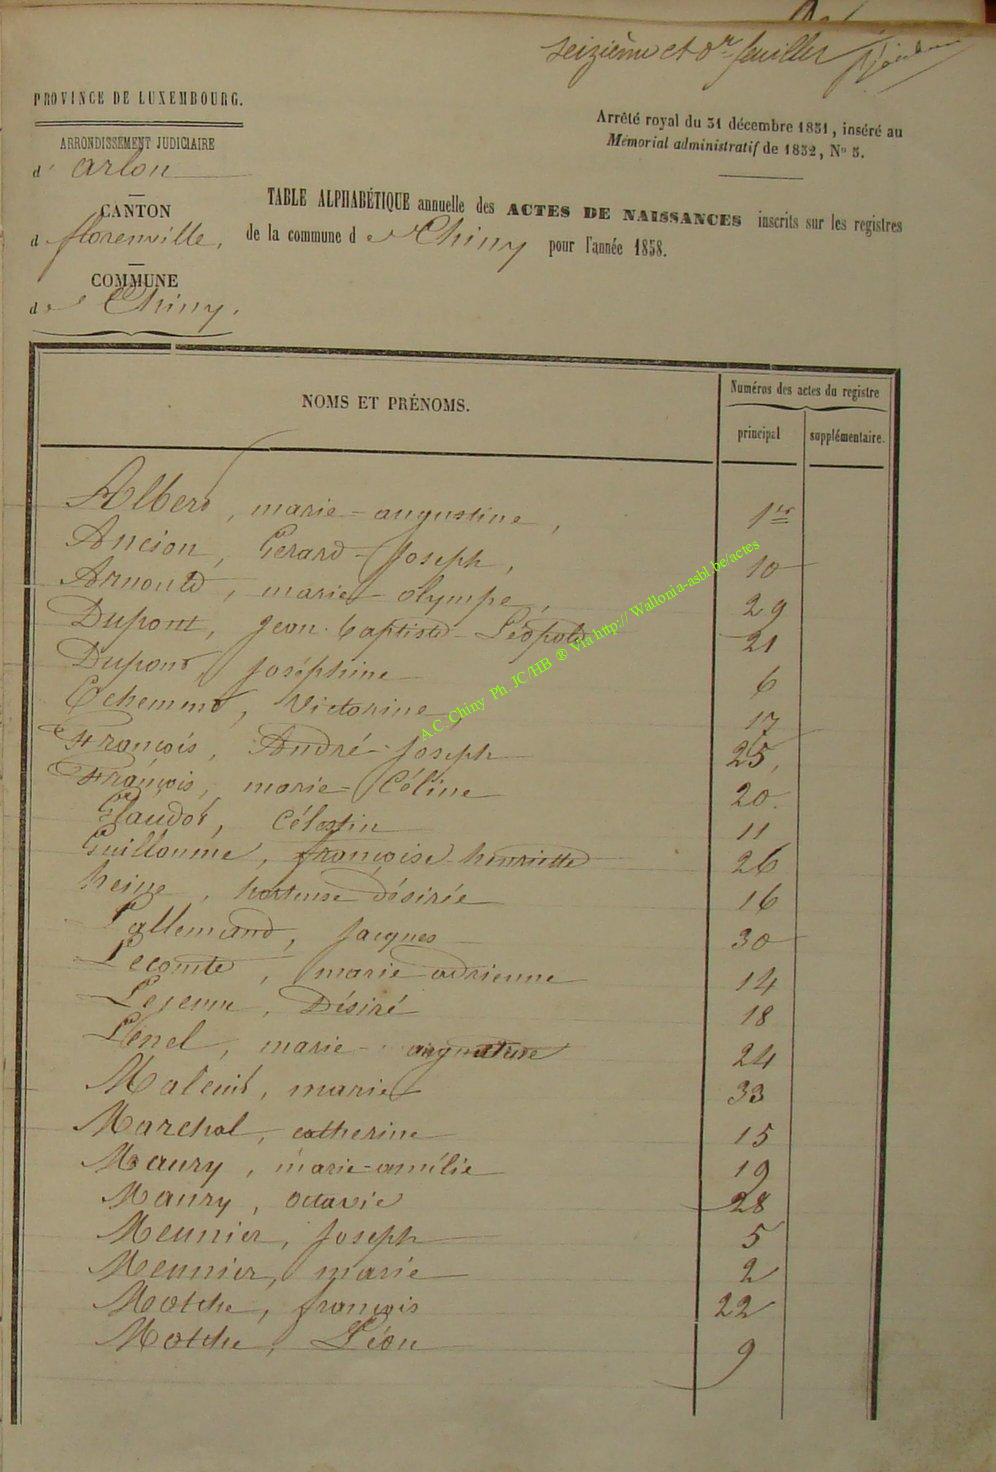 seizième et dr feuillet
PROVINCE DE LUXEMBOURG.
ARRONDISSEMENT JUDICIAIRE
d'arlon
CANTON
d florenville,
COMMUNE
de Chiny.
Arrêté royal du 31 décembre 1831, inséré au
Mémorial administratif de 1832, No 5.
TABLE ALPHABÉTIQUE annuelle des ACTES DE NAISSANCES inscrits sur les registres
de la commune de Chiny pour l'année 1858.
NOMS ET PRÉNOMS.
Numéros des actes du registre
principal supplémentaire.
Albert, marie-augustine, 1er
Ancion, Gerard-Joseph, 10
Arnould, marie-olympe, 29
Dupont, Jean-baptiste-Léopold 21
Dupont, Joséphine 6
Echement, Victorine 17
François, André-Joseph 25,
François, marie-Céline 20.
Glaudot, Célestin 11
Guillaume, françoise-henriette 26
heine, hortense-désirée 16
Lallemand, Jacques 30
Lecomte, marie-adrienne 14
Lejeune, Désiré 18
Lenel, marie 24
marie 33
Marchal, catherine 15
Maury, marie-amélie 19
Maury, octavie 28
Meunier, Joseph 5
Meunier, marie 2
Motche, françois 22
Motche, Léon 9
A.C. Chiny Ph. JC/HB ® Via http:// Wallonia-asbl.be/actes